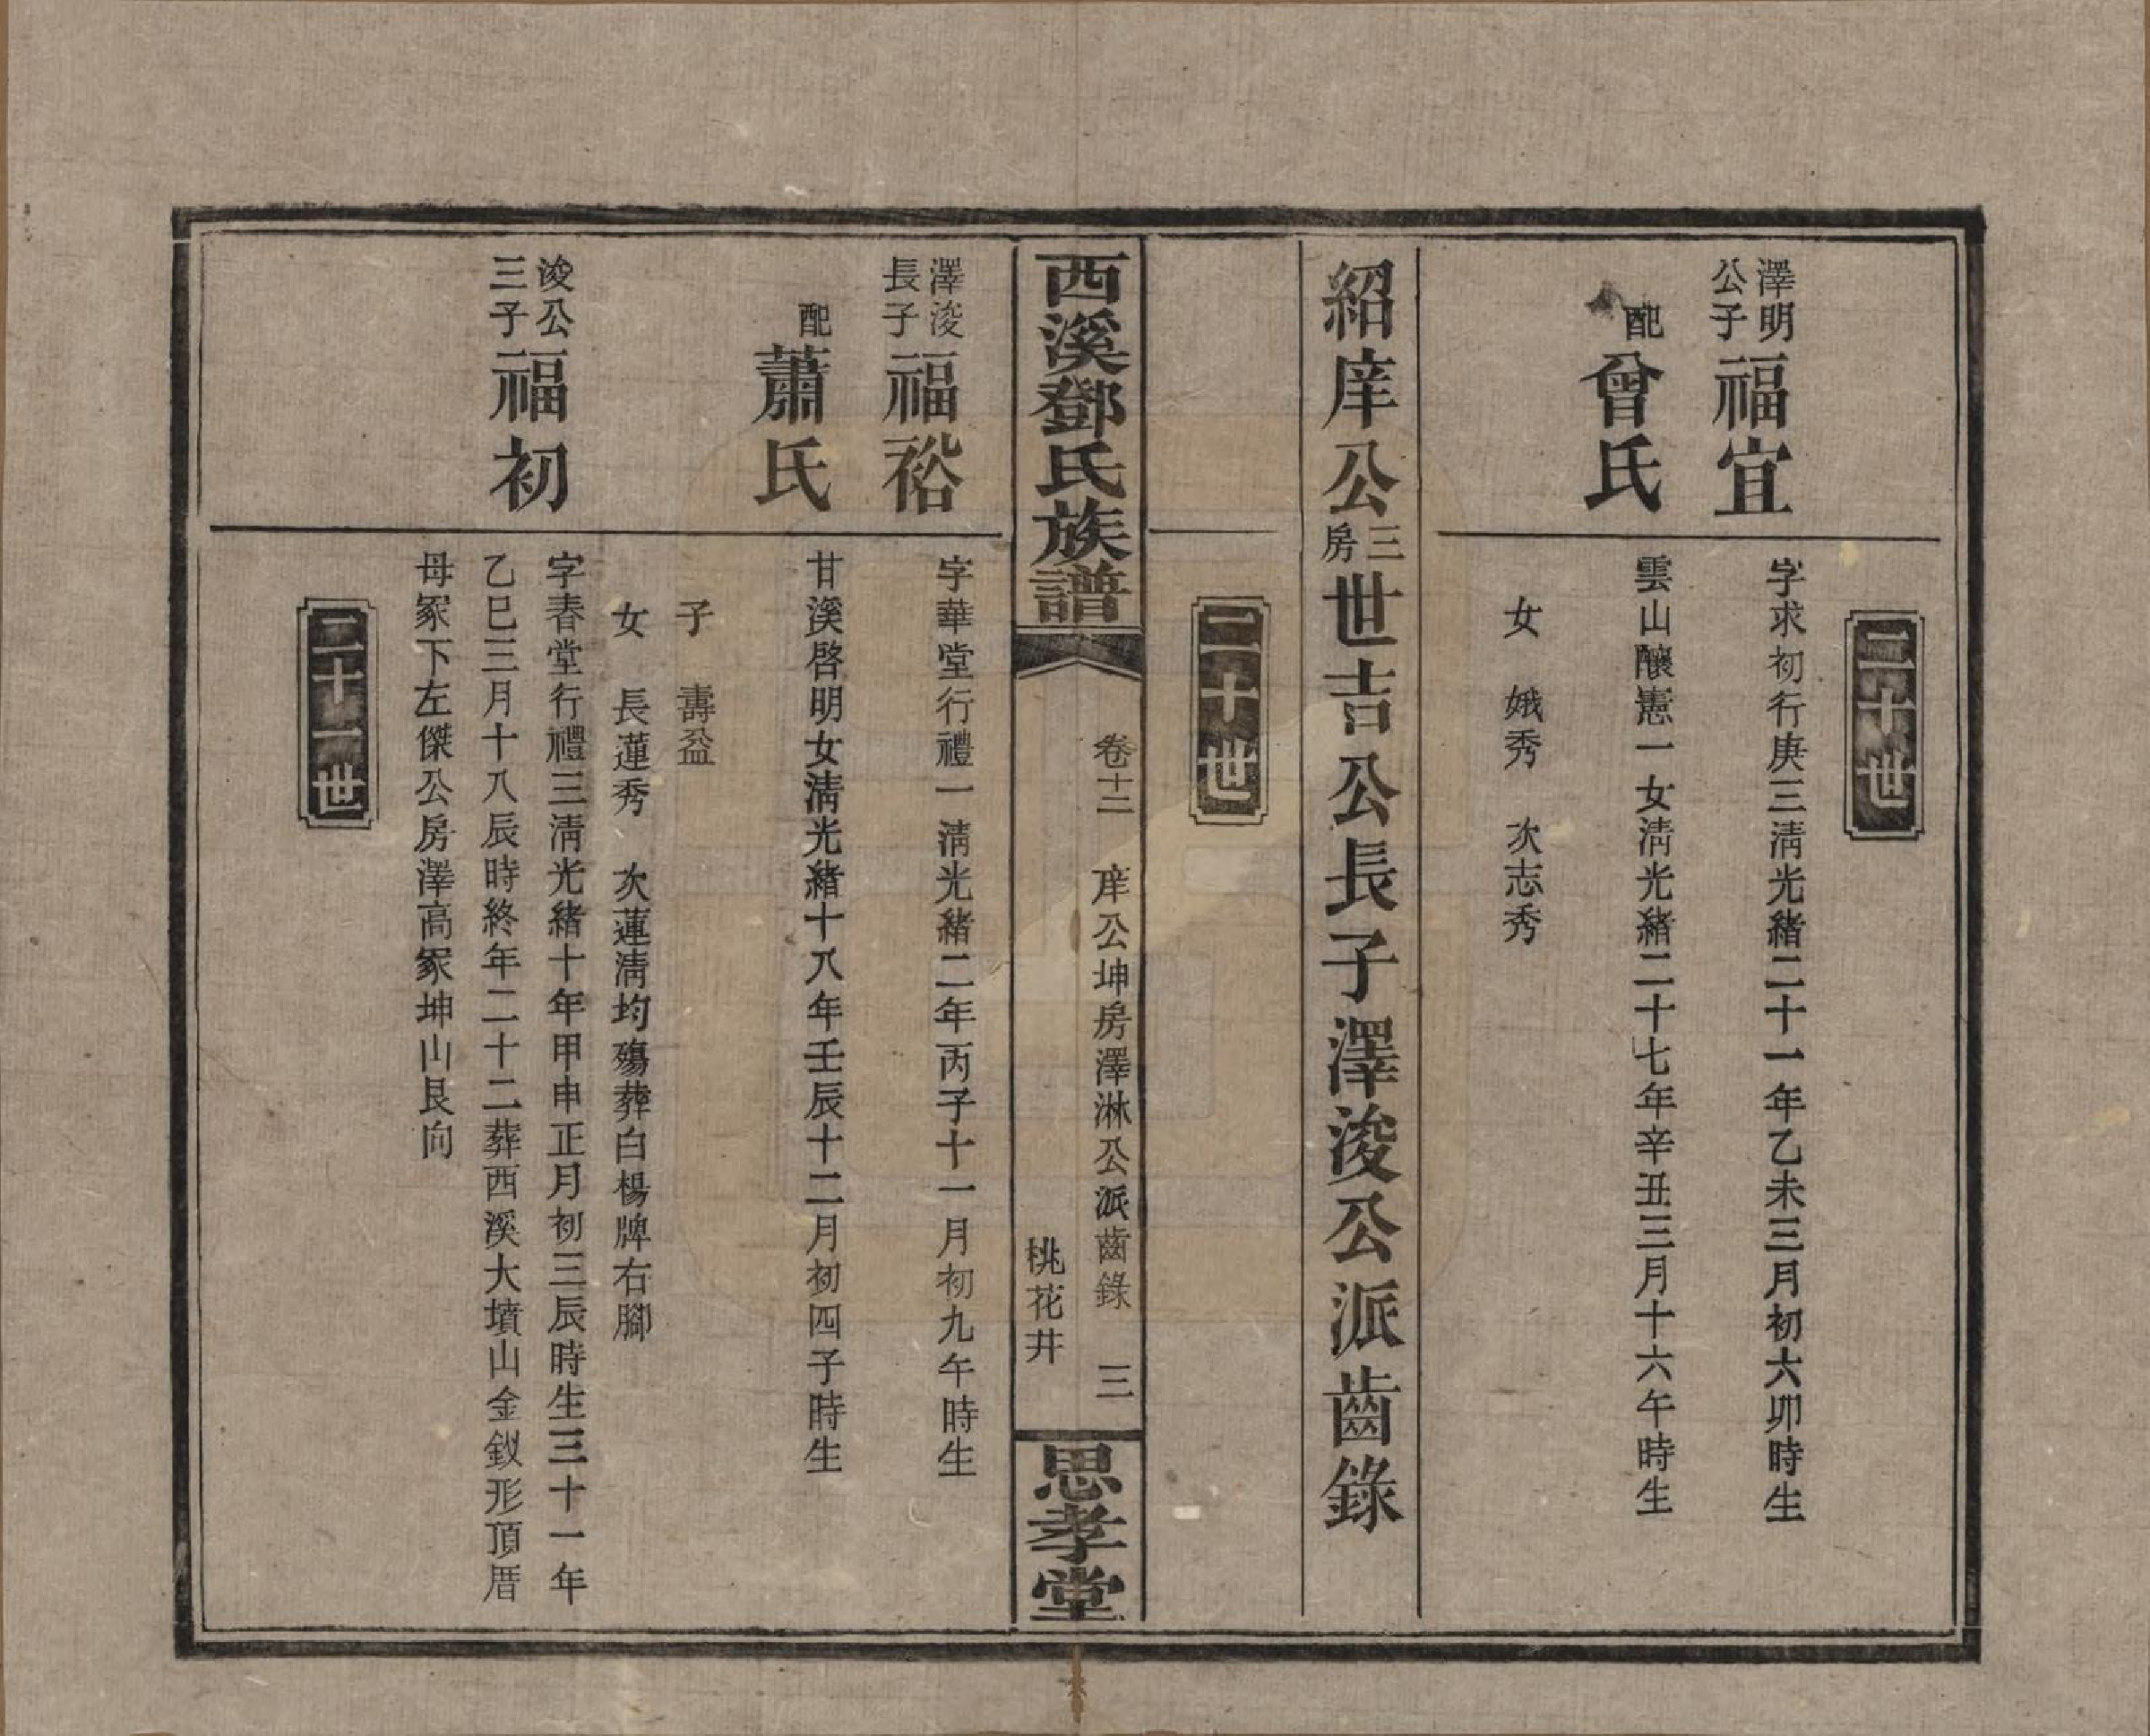 二十世
澤明
公子
福宜
字求初行庚三淸光緒二十一年乙未三月初六卯時生
配
曾氏
雲山釀憲一女淸光緒二十七年辛丑三月十六午時生
女 娥秀 次志秀
紹庠公三房世吉公長子澤浚公派齒錄
二十世
西溪鄧氏族譜
卷十二 庠公坤房澤淋公派齒錄 三
桃花井
思孝堂
澤浚
長子
福裕
字華堂行禮一淸光緒二年丙子十一月初九午時生
配
蕭氏
甘溪啓明女淸光緒十八年壬辰十二月初四子時生
子 壽益
女 長蓮秀 次蓮淸均殤葬白楊牌右腳
浚公
三子
福初
字春堂行禮三淸光緒十年甲申正月初三辰時生三十一年
乙巳三月十八辰時終年二十二葬西溪大墳山金釵形頂厝
母冢下左傑公房澤高冢坤山艮向
二十一世